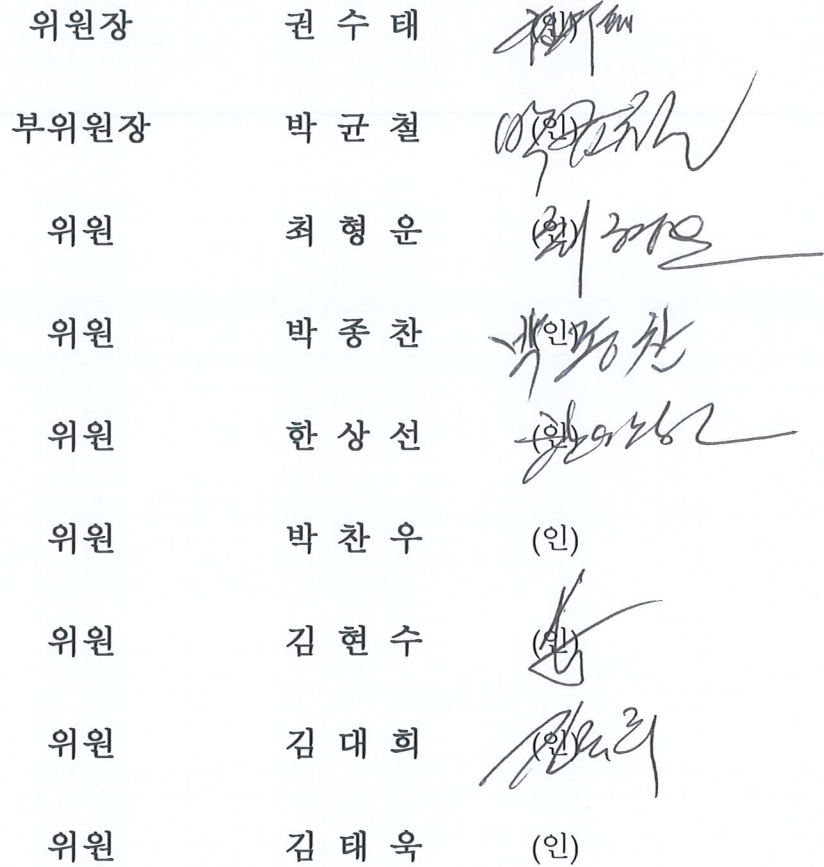 위원장 권 수 태 (인)
부위원장 박 균 철 (인) 박균철
위원 최 형 운 (인) 최형운
위원 박 종 찬 (인) 박종찬
위원 한 상 선 (인)
위원 박 찬 우 (인)
위원 김 현 수 (인)
위원 김 대 희 (인) 김대희
위원 김 태 욱 (인)